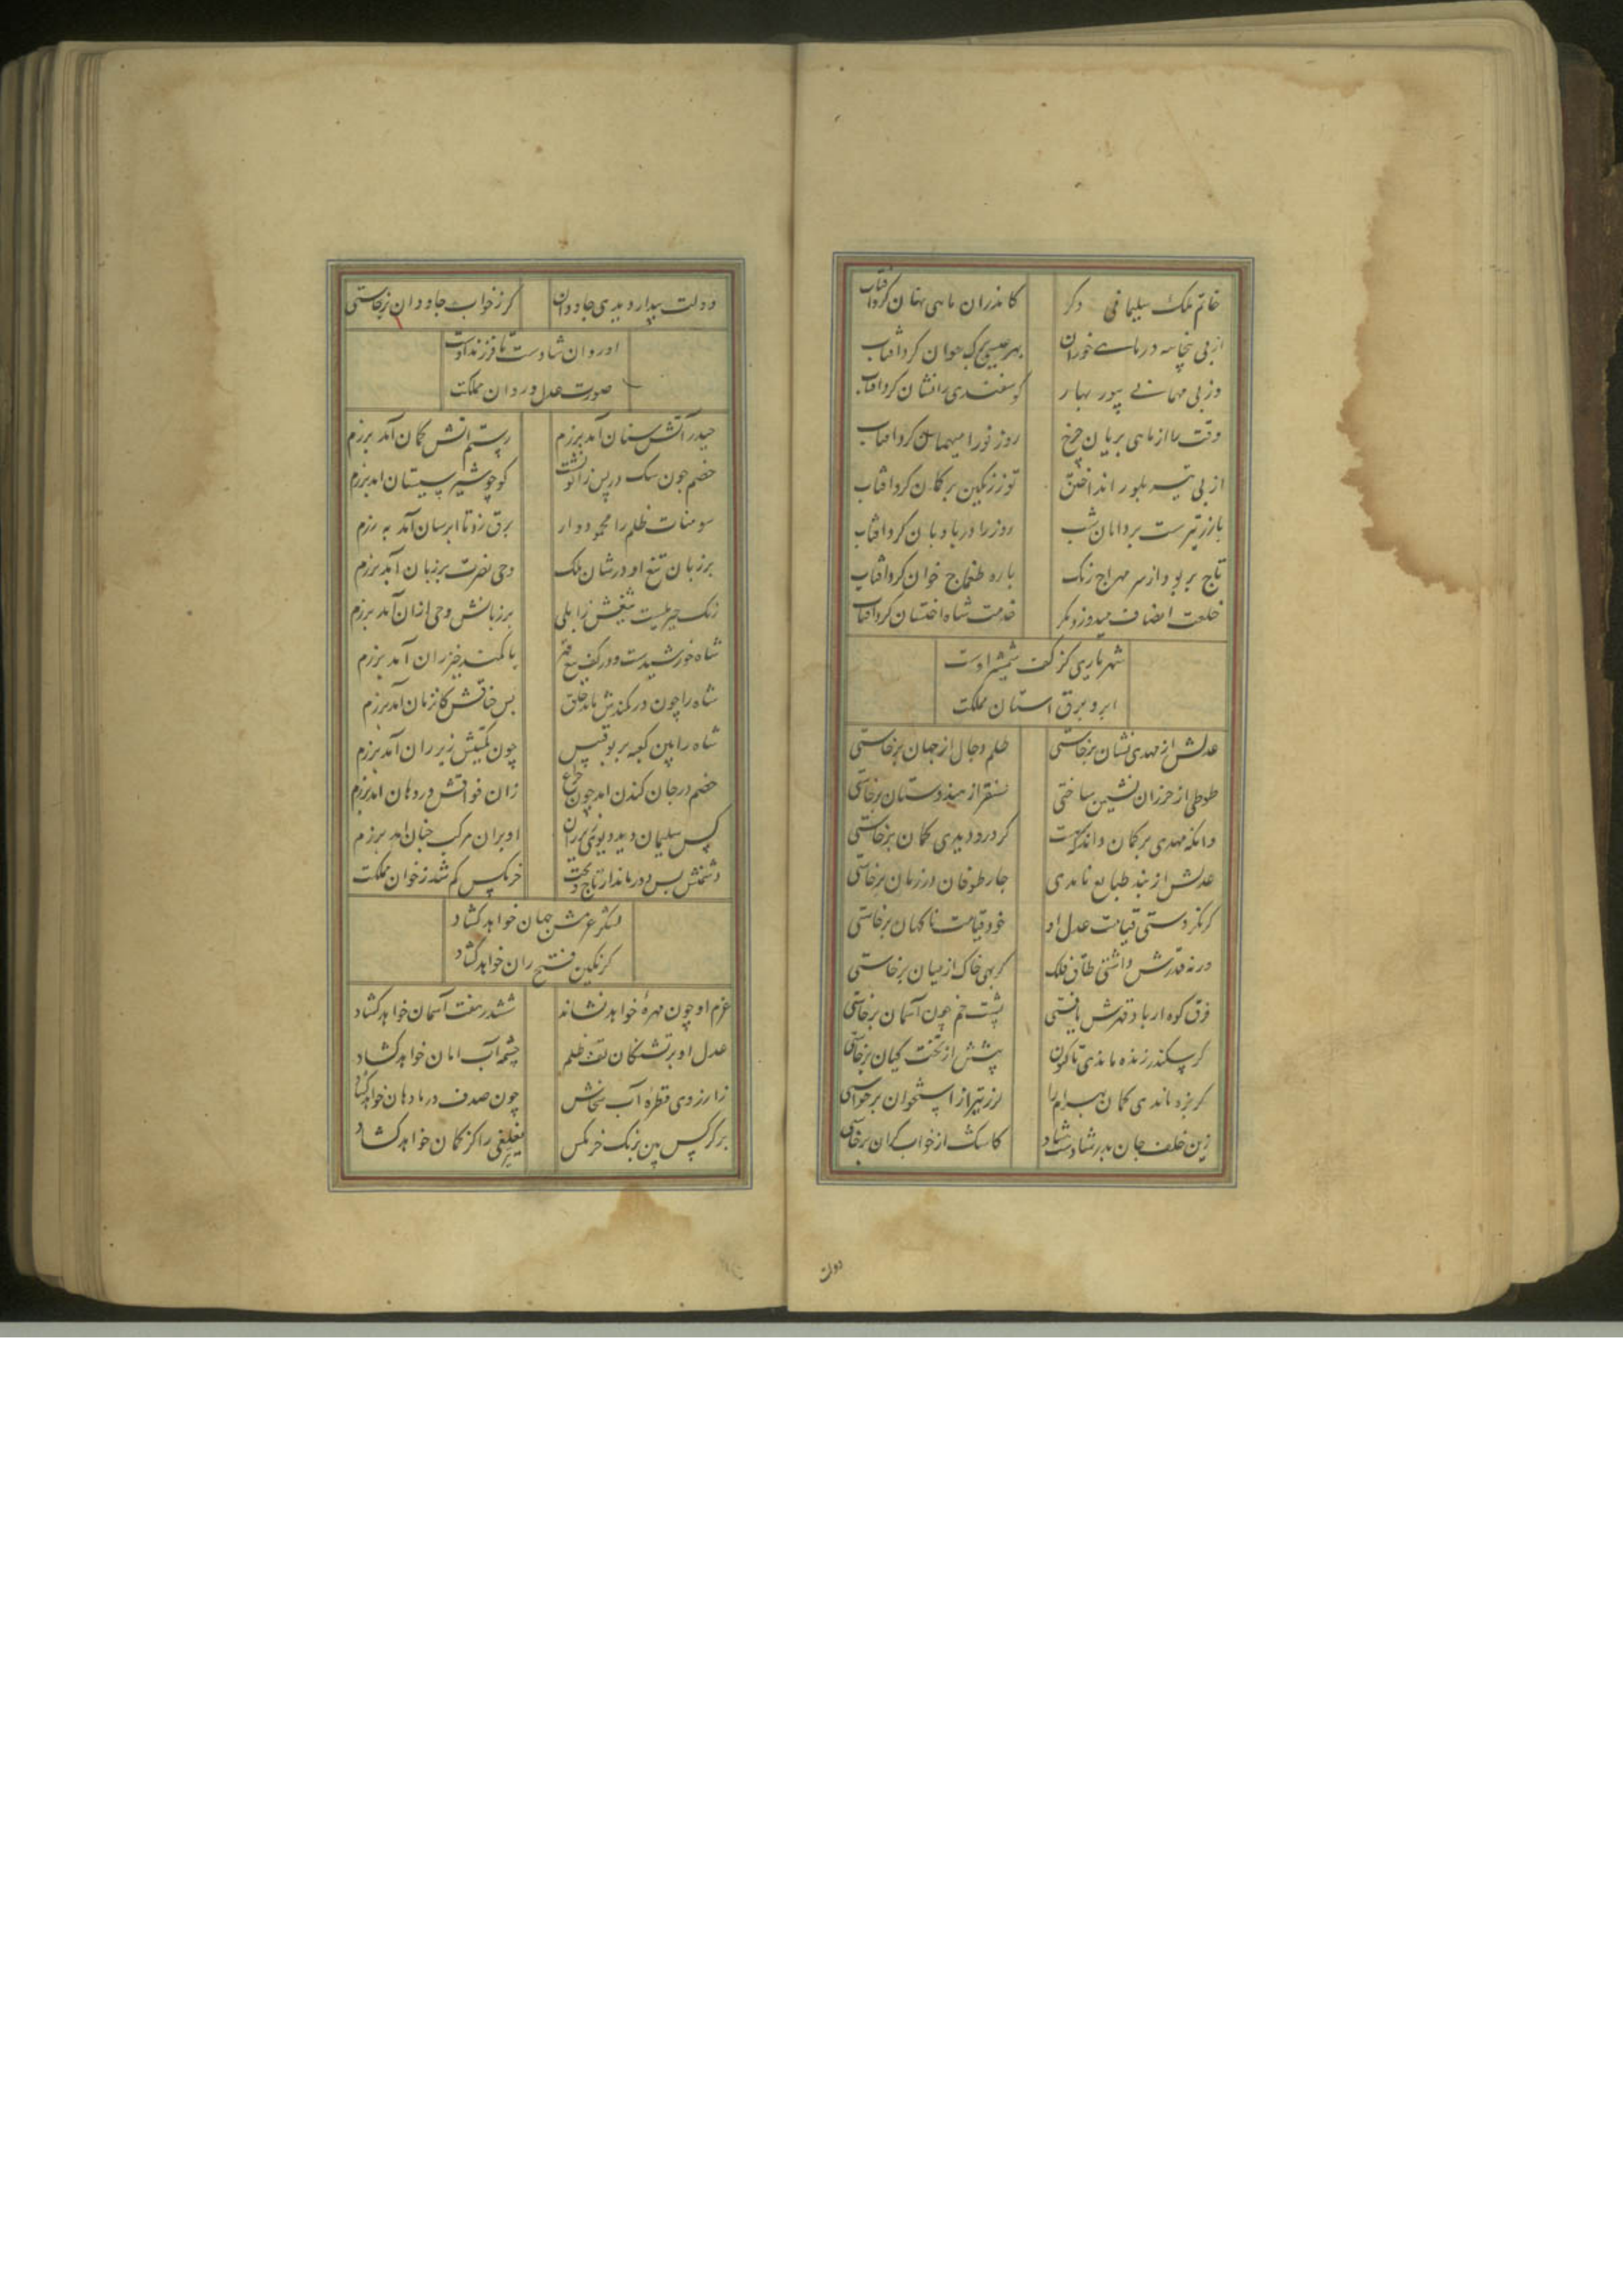 خاتم ملک سلیمانی دگر
کاندران ماهی نهان کرد آفتاب
از پی پنجاسه دریای خوران
بهر عیسی یک خوان کرد آفتاب
وز پی مهمانی پور بهار
گوسفندی را نشان کرد آفتاب
وقت را از ماهی بریان چرخ
روز نو را میهمان کرد آفتاب
از پی تیر بلور انداختن
توز زرکین بر کمان کرد آفتاب
روز را در بادبان کرد آفتاب
تاج بربود از سر مهراج زنگ
یاره طمغاج خوان کرد آفتاب
خلعت انصاف میدوزد مگر
خدمت شاه اخستان کرد آفتاب
شهریاری کز کف شمشیر اوست
ابر و برق آستان مملکت
عدلش از مهدی نشان برخاستی
ظلم دجال از جهان برخاستی
طوطی از خزران نشیمن ساختی
سنقر از هندوستان برخاستی
وانکه مهدی بر کمان داند که هست
گر درو دیدی کمان برخاستی
عدلش ار بند طبایع نامدی
چار طوفان در زمان برخاستی
گر نکردستی قیامت عدل او
خود قیامت ناکهان برخاستی
ور نه قدرش داشتی طاق فلک
خاک از میان برخاستی
فرق کوه ار باد قهرش یافتی
پشت خم چون آسمان برخاستی
گر سکندر زنده ماندی تاکنون
پیشش از تخت کیان برخاستی
گر بزه ماندی کمان بهرام را
لرز تیر از استخوان برخاستی
زین خلف جان پدر شادست شاد
کاسک از خواب گران برخاستی
دولت
دولت بیدار دیدی جاودان
گر ز خواب جاودان برخاستی
او روان شادست تا فرزند اوست
صورت عدل و روان مملکت
حیدر آتش سنان آمد برزم
رستم آتش کمان آمد برزم
خصم چون سگ در پس زانو نشست
کو چو شیر سیستان آمد برزم
سومنات ظلم را محمودوار
برق زد تا ابرسان آمد به رزم
بر زبان تیغ او در شان ملک
وحی نصرت بر زبان آمد برزم
رنگ جبریلست تیغش زابلی
بر زبانش وحی ازان آمد برزم
شاه خورشیدست و در کف تیغ
با کمند خیزران آمد برزم
شاه را چون در کمندش ماند خلق
بس خناقش کان زمان آمد برزم
شاه را بین کعبه بر بوقبیس
چون کمیتش زیر ران آمد برزم
خصم در جان کندن آمد چون چراغ
زان فواقش در دهان آمد برزم
کس سلیمان دید دیوی زیر ران
او بران مرکب چنان آمد برزم
دشمنش بس دور ماند از تاج و تخت
خرمگس کم شد ز خوان مملکت
لشکر عزمش جهان خواهد گشاد
کز کمین فتح ران خواهد گشاد
عزم او چون مهره خواهد نشاند
ششدر هفت آسمان خواهد گشاد
عدل او بر تشنگان تف ظلم
چشمه آب امان خواهد گشاد
زآرزوی قطره آب سخاش
چون صدف دریا دهان خواهد گشاد
هر کرکس بین بزنگ خرمگس
را کز کمان خواهد گشاد